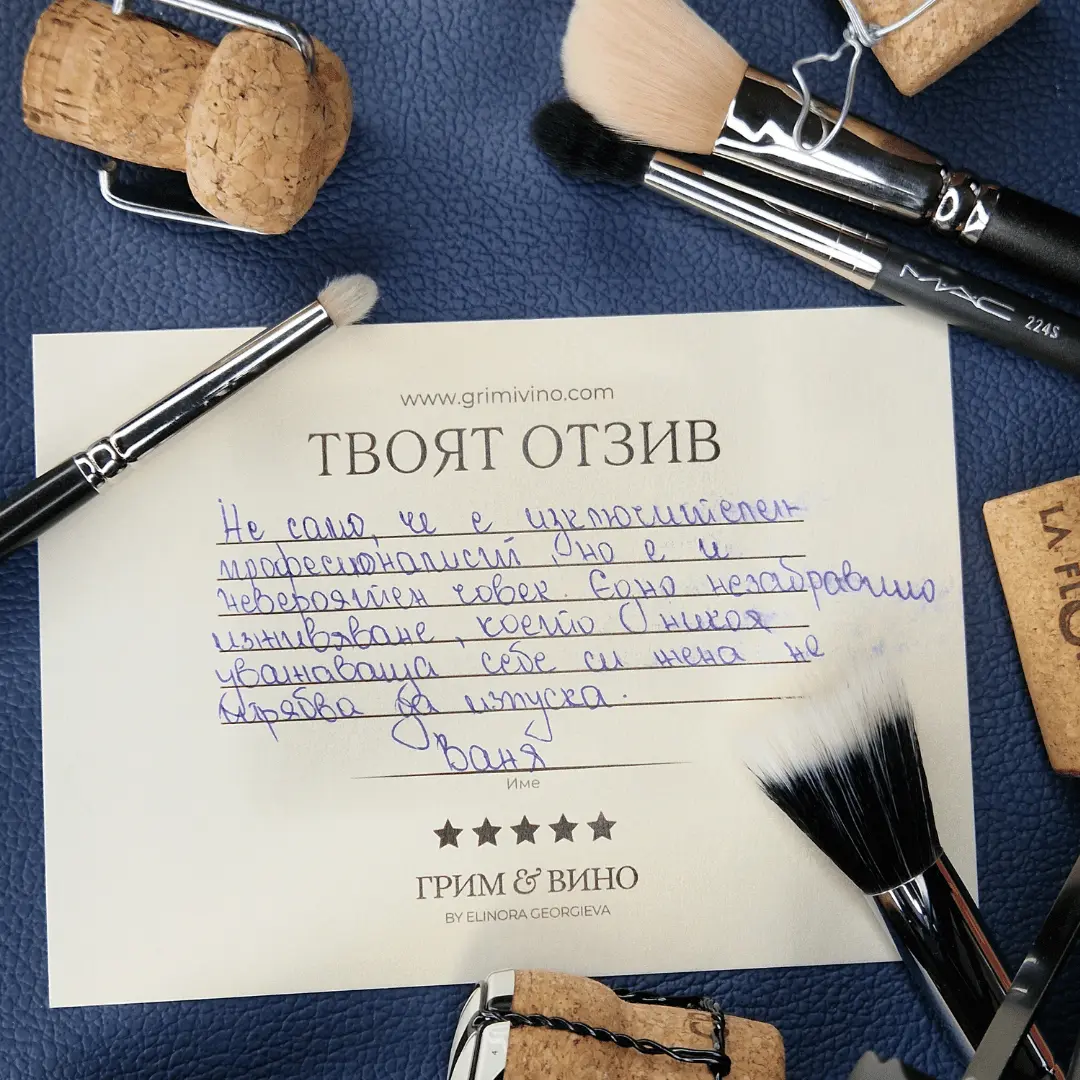 MAC
224S
www.grimivino.com
ТВОЯТ ОТЗИВ
Не само, че е изключителен
професионалист, но е и
невероятен човек. Едно незабравимо
изживяване, което никоя
уважаваща себе си жена не
трябва да изпуска.
Ваня
Име
ГРИМ & ВИНО
BY ELINORA GEORGIEVA